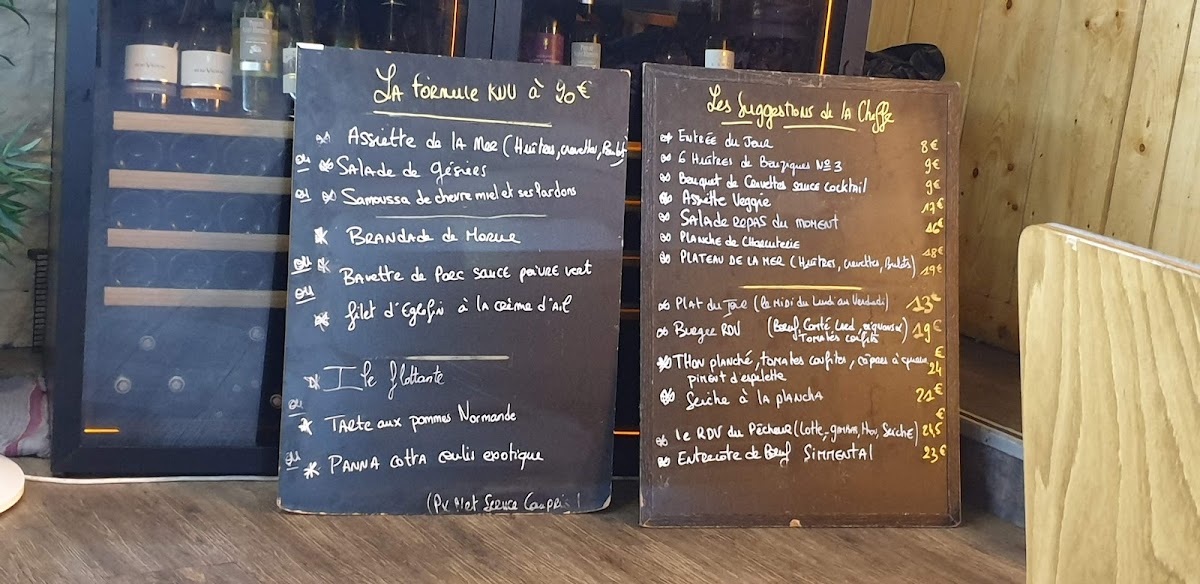 LA formule RDV à 20€
Assiette de la Mer (Huîtres, crevettes, Bulots)
ou Salade de gésiers
ou Samoussa de chevre miel et ses lardons
Brandade de Morue
ou Bavette de Porc sauce poivre vert
ou filet d'Eglefin à la crème d'Ail
Ile flottante
ou Tarte aux pommes Normande
ou Panna cotta coulis exotique
(Px Net Service Compris)
Les Suggestions de la Cheffe
Entrée du Jour 8€
6 Huîtres de Bouzigues N°3 9€
Bouquet de Crevettes sauce cocktail 9€
Assiette Veggie 17€
Salade repas du moment 16€
Planche de Charcuterie 18€
Plateau de la mer (Huîtres, crevettes, Bulots) 19€
Plat du Jour (le Midi du Lundi au Vendredi) 13€
Burger RDV (Boeuf, Comté, Lard, oignons 19€
Tomates confites)
Thon planché, tomates confites, câpres à queue, 24€
piment d'espelette
Seiche à la plancha 21€
le RDV du Pêcheur (Lotte, gambas, thon, Seiche) 24,5€
Entrecote de Boeuf SIMMENTAL 23€